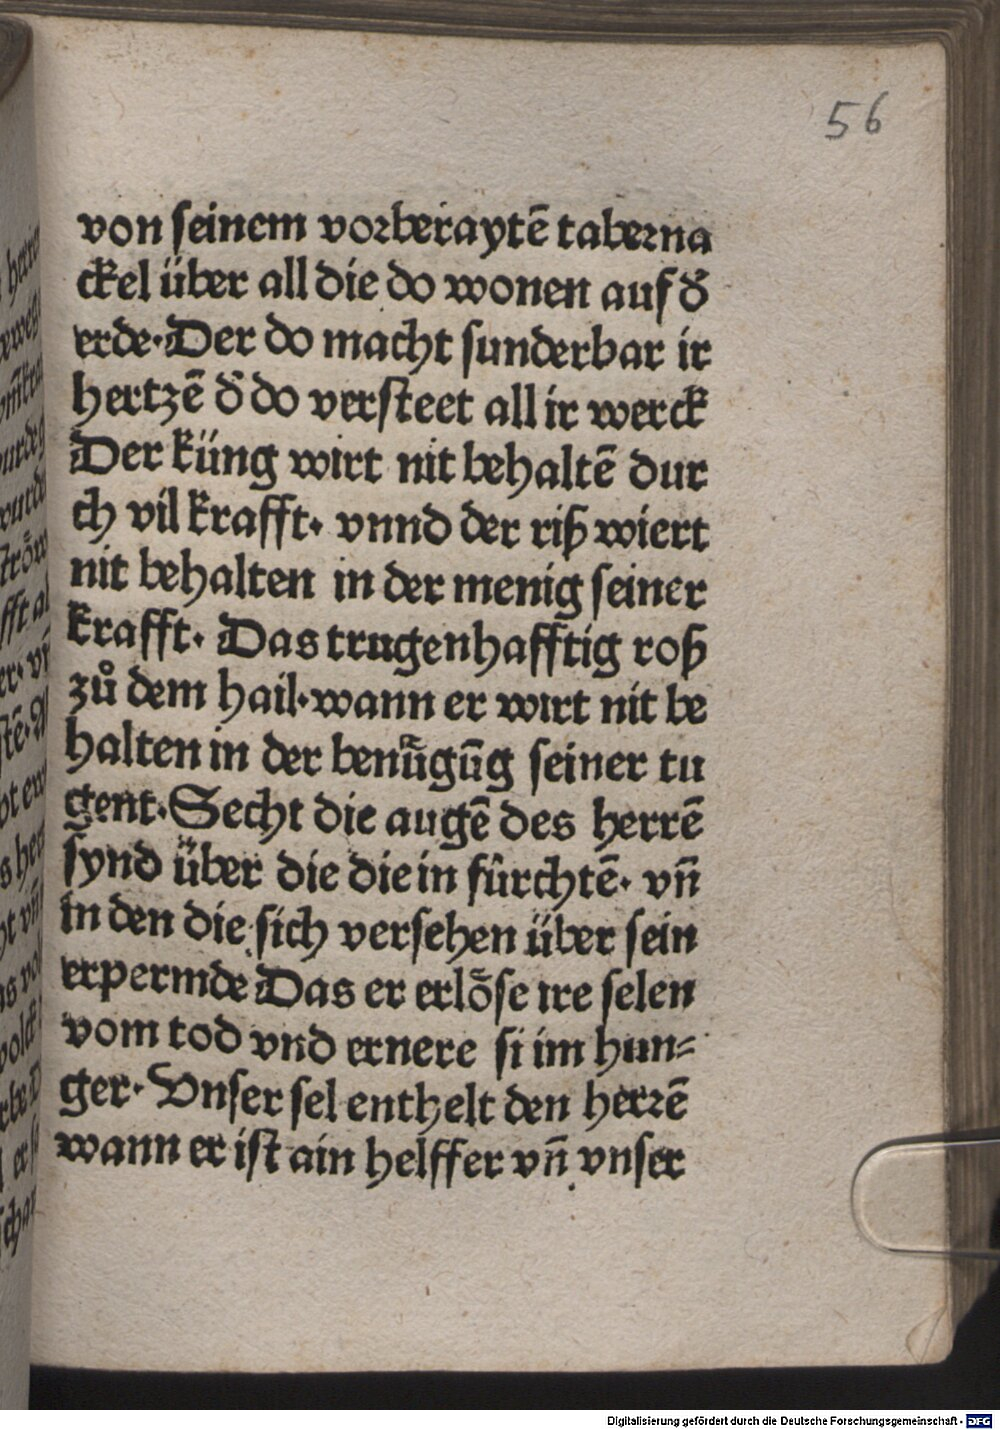 56
von seinem vorberaytē taberna
ckel über all die do wonen auf d̄
erde. Der do macht sunderbar ir
hertzē d̄ do versteet all ir werck
Der küng wirt nit behaltē dur
ch vil krafft. vnnd der riß wiert
nit behalten in der menig seiner
krafft. Das trugenhafftig roß
zů dem hail. wann er wirt nit be
halten in der benügūg seiner tu
gent. Secht die augē des herrē
synd über die die in fürchtē. vn̄
in den die sich versehen über sein
erpermde Das er erlöse ire selen
vom tod vnd ernere si im hun⸗
ger. Vnser sel enthelt den herrē
wann er ist ain helffer vn̄ vnser
Digitalisierung gefördert durch die Deutsche Forschungsgemeinschaft - DFG